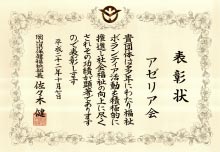 表彰状
アゼリア会
貴団体は多年にわたり福祉
ボランティア活動を積極的に
推進し社会福祉の向上に尽く
されその功績が顕著であります
ので表彰します
平成二十二年十月七日
岡山県保健福祉部長 佐々木健